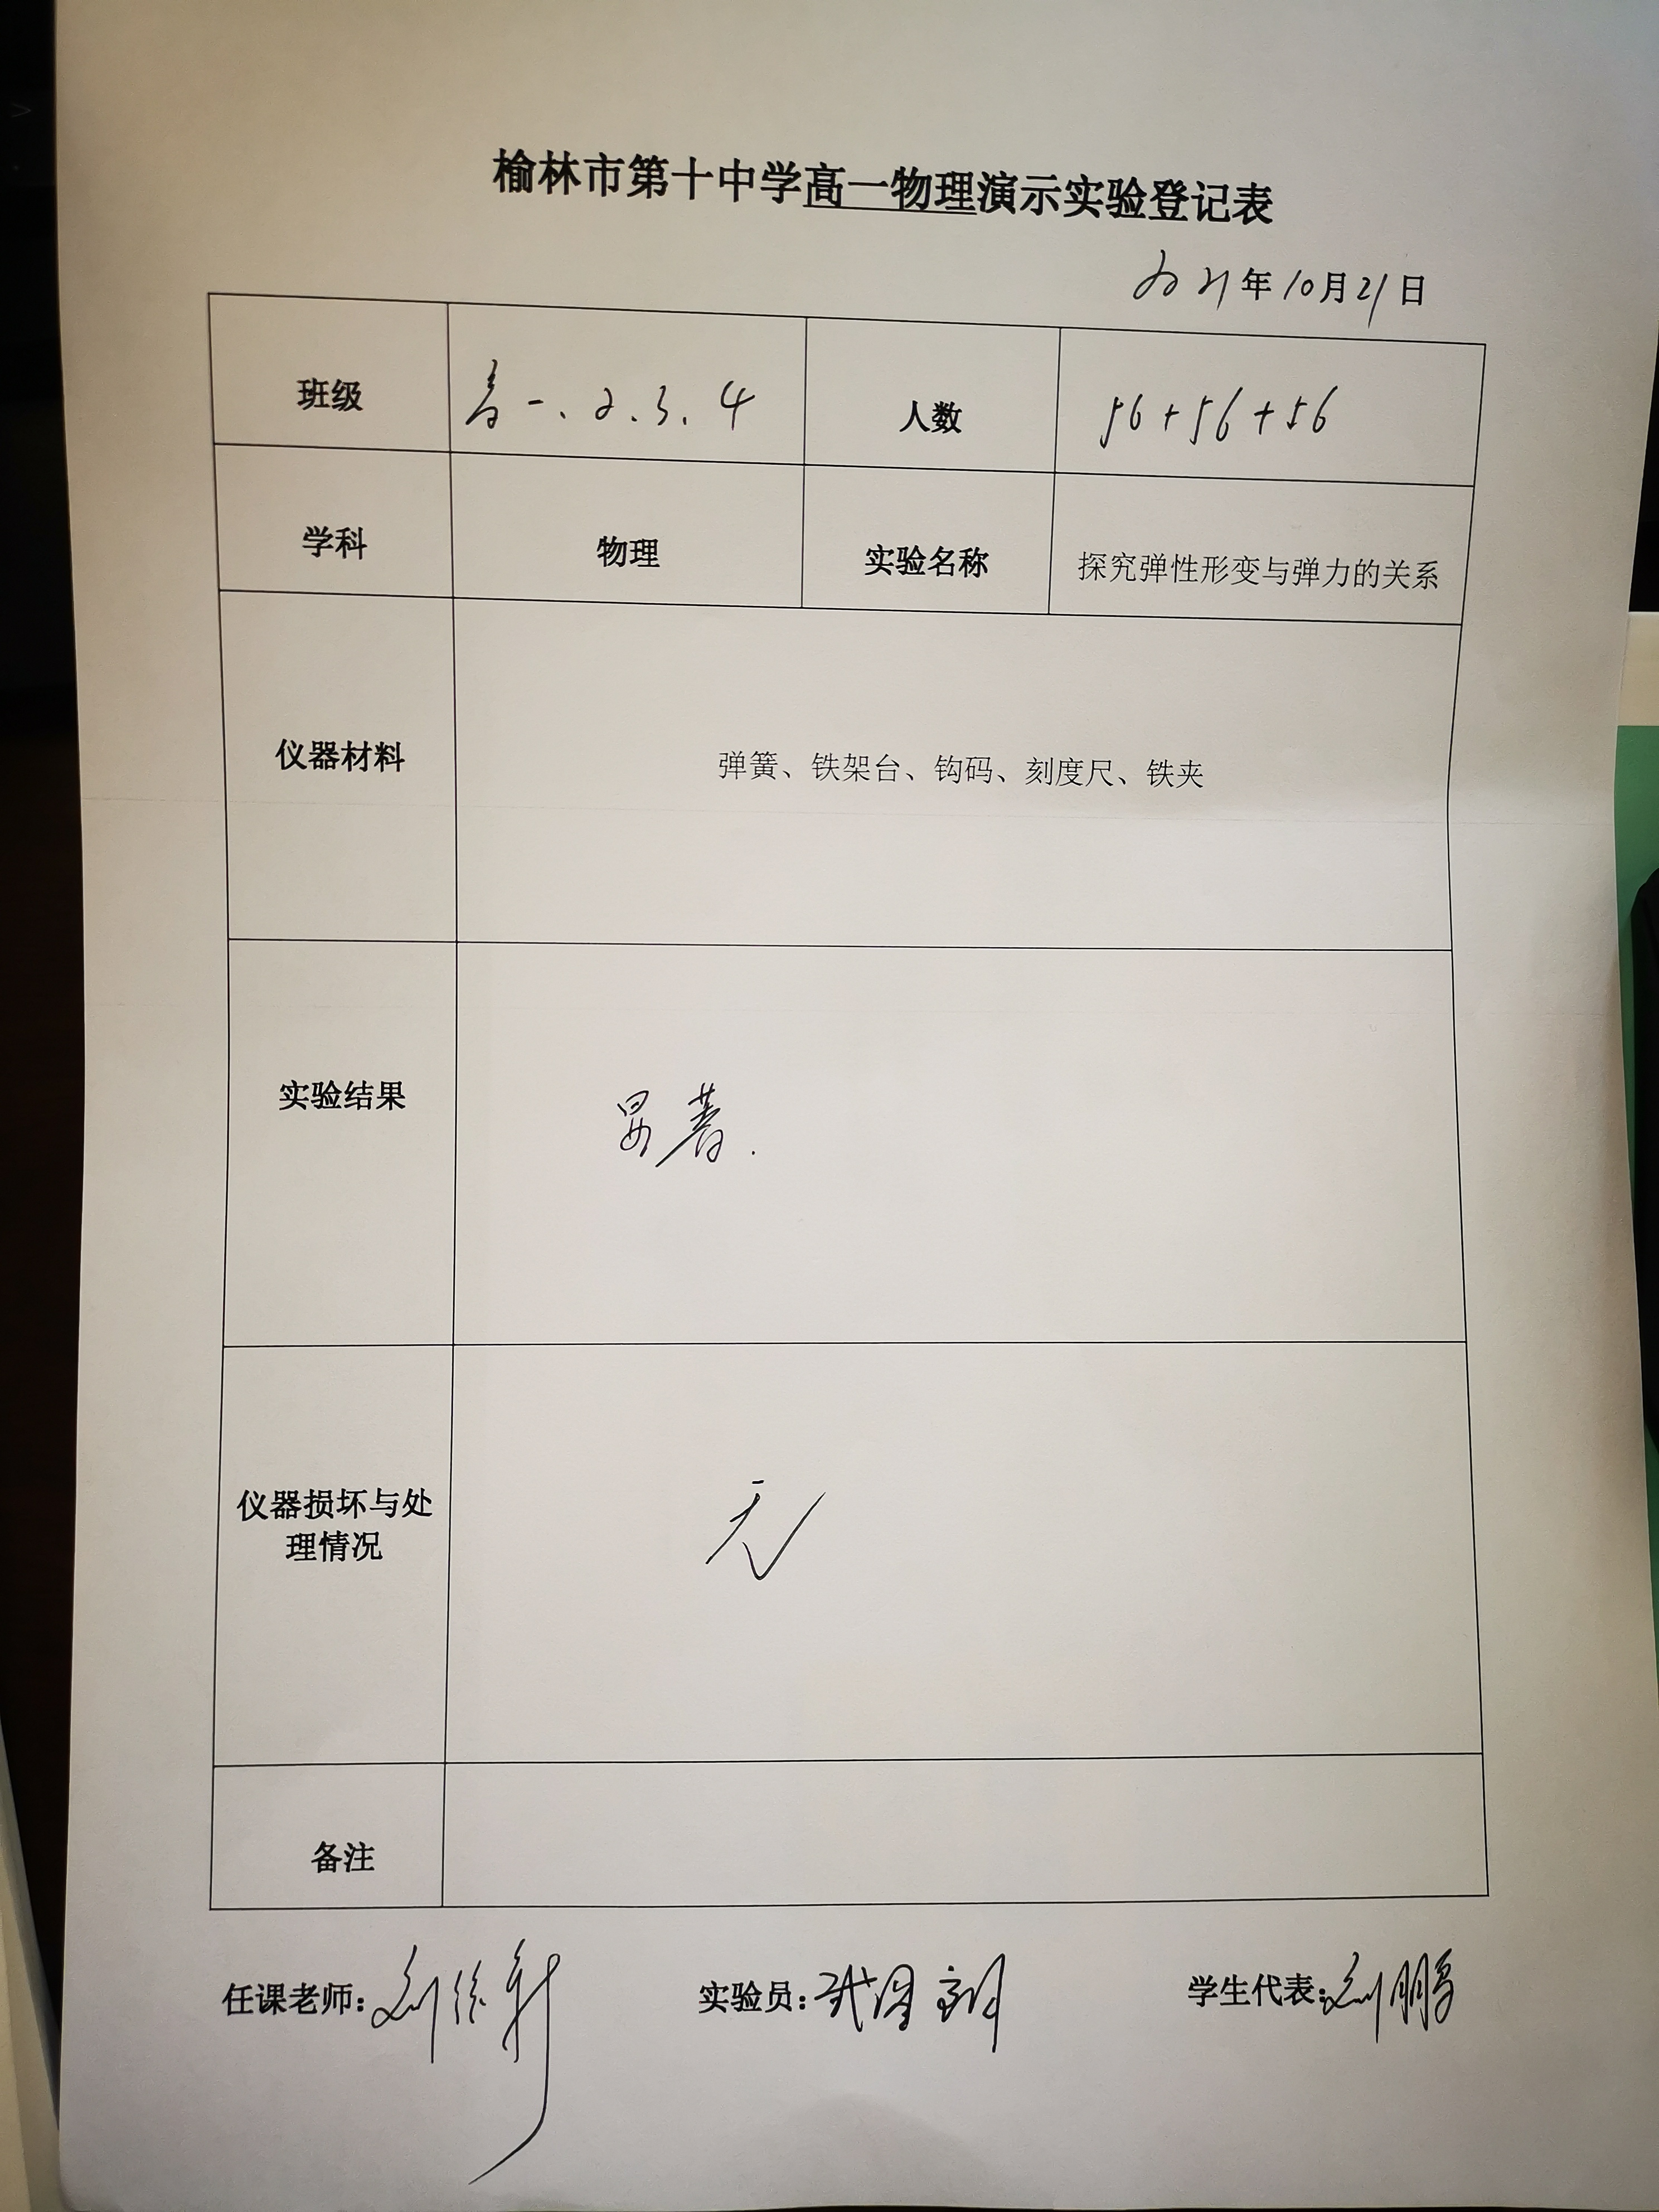 榆林市第十中学高一物理演示实验登记表
2021年10月21日
班级 高一、2、3、4 人数 56+56+56
学科 物理 实验名称 探究弹性形变与弹力的关系
仪器材料 弹簧、铁架台、钩码、刻度尺、铁夹
实验结果 显著.
仪器损坏与处
理情况 无
备注
任课老师:刘 实验员: 学生代表:刘鹏